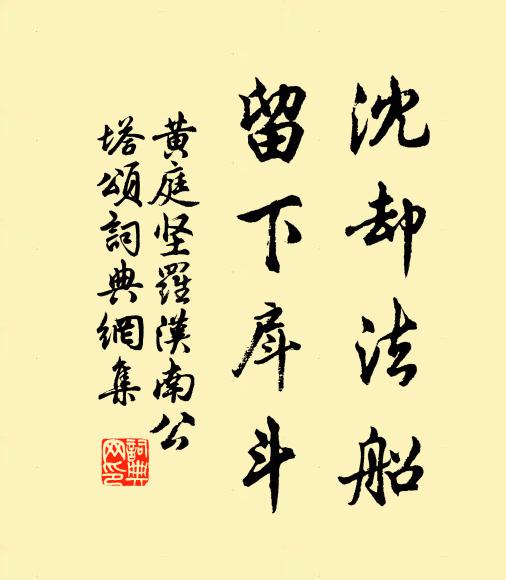 沈却法船
留下戽斗
黄庭坚羅漢南公
塔頌詞典網集
詞典网印